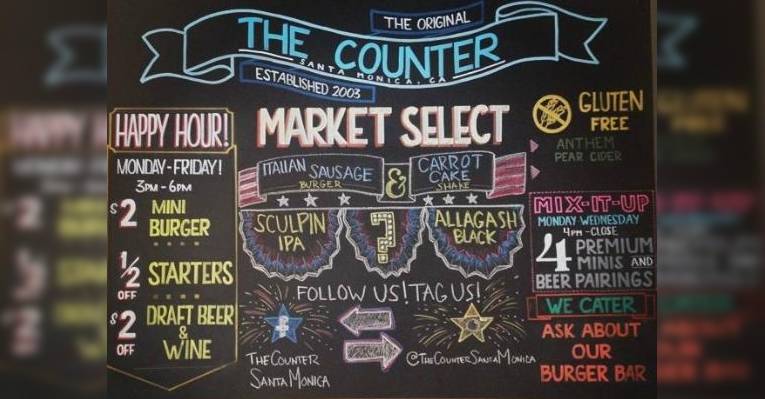 THE ORIGINAL
THE COUNTER
SANTA MONICA, CA
ESTABLISHED 2003
HAPPY HOUR!
MONDAY-FRIDAY!
3PM-6PM
$2 MINI
BURGER
1/2 OFF STARTERS
$2 OFF DRAFT BEER
&
WINE
MARKET SELECT
ITALIAN SAUSAGE
BURGER
&
CARROT
CAKE
SHAKE
SCULPIN
IPA
?
ALLAGASH
BLACK
FOLLOW US! TAG US!
f
THE COUNTER
SANTA MONICA
@THECOUNTERSANTAMONICA
GLUTEN
FREE
ANTHEM
PEAR CIDER
MIX-IT-UP
MONDAY-WEDNESDAY
4PM-CLOSE
4 PREMIUM
MINIS AND
BEER PAIRINGS
WE CATER
ASK ABOUT
OUR
BURGER BAR